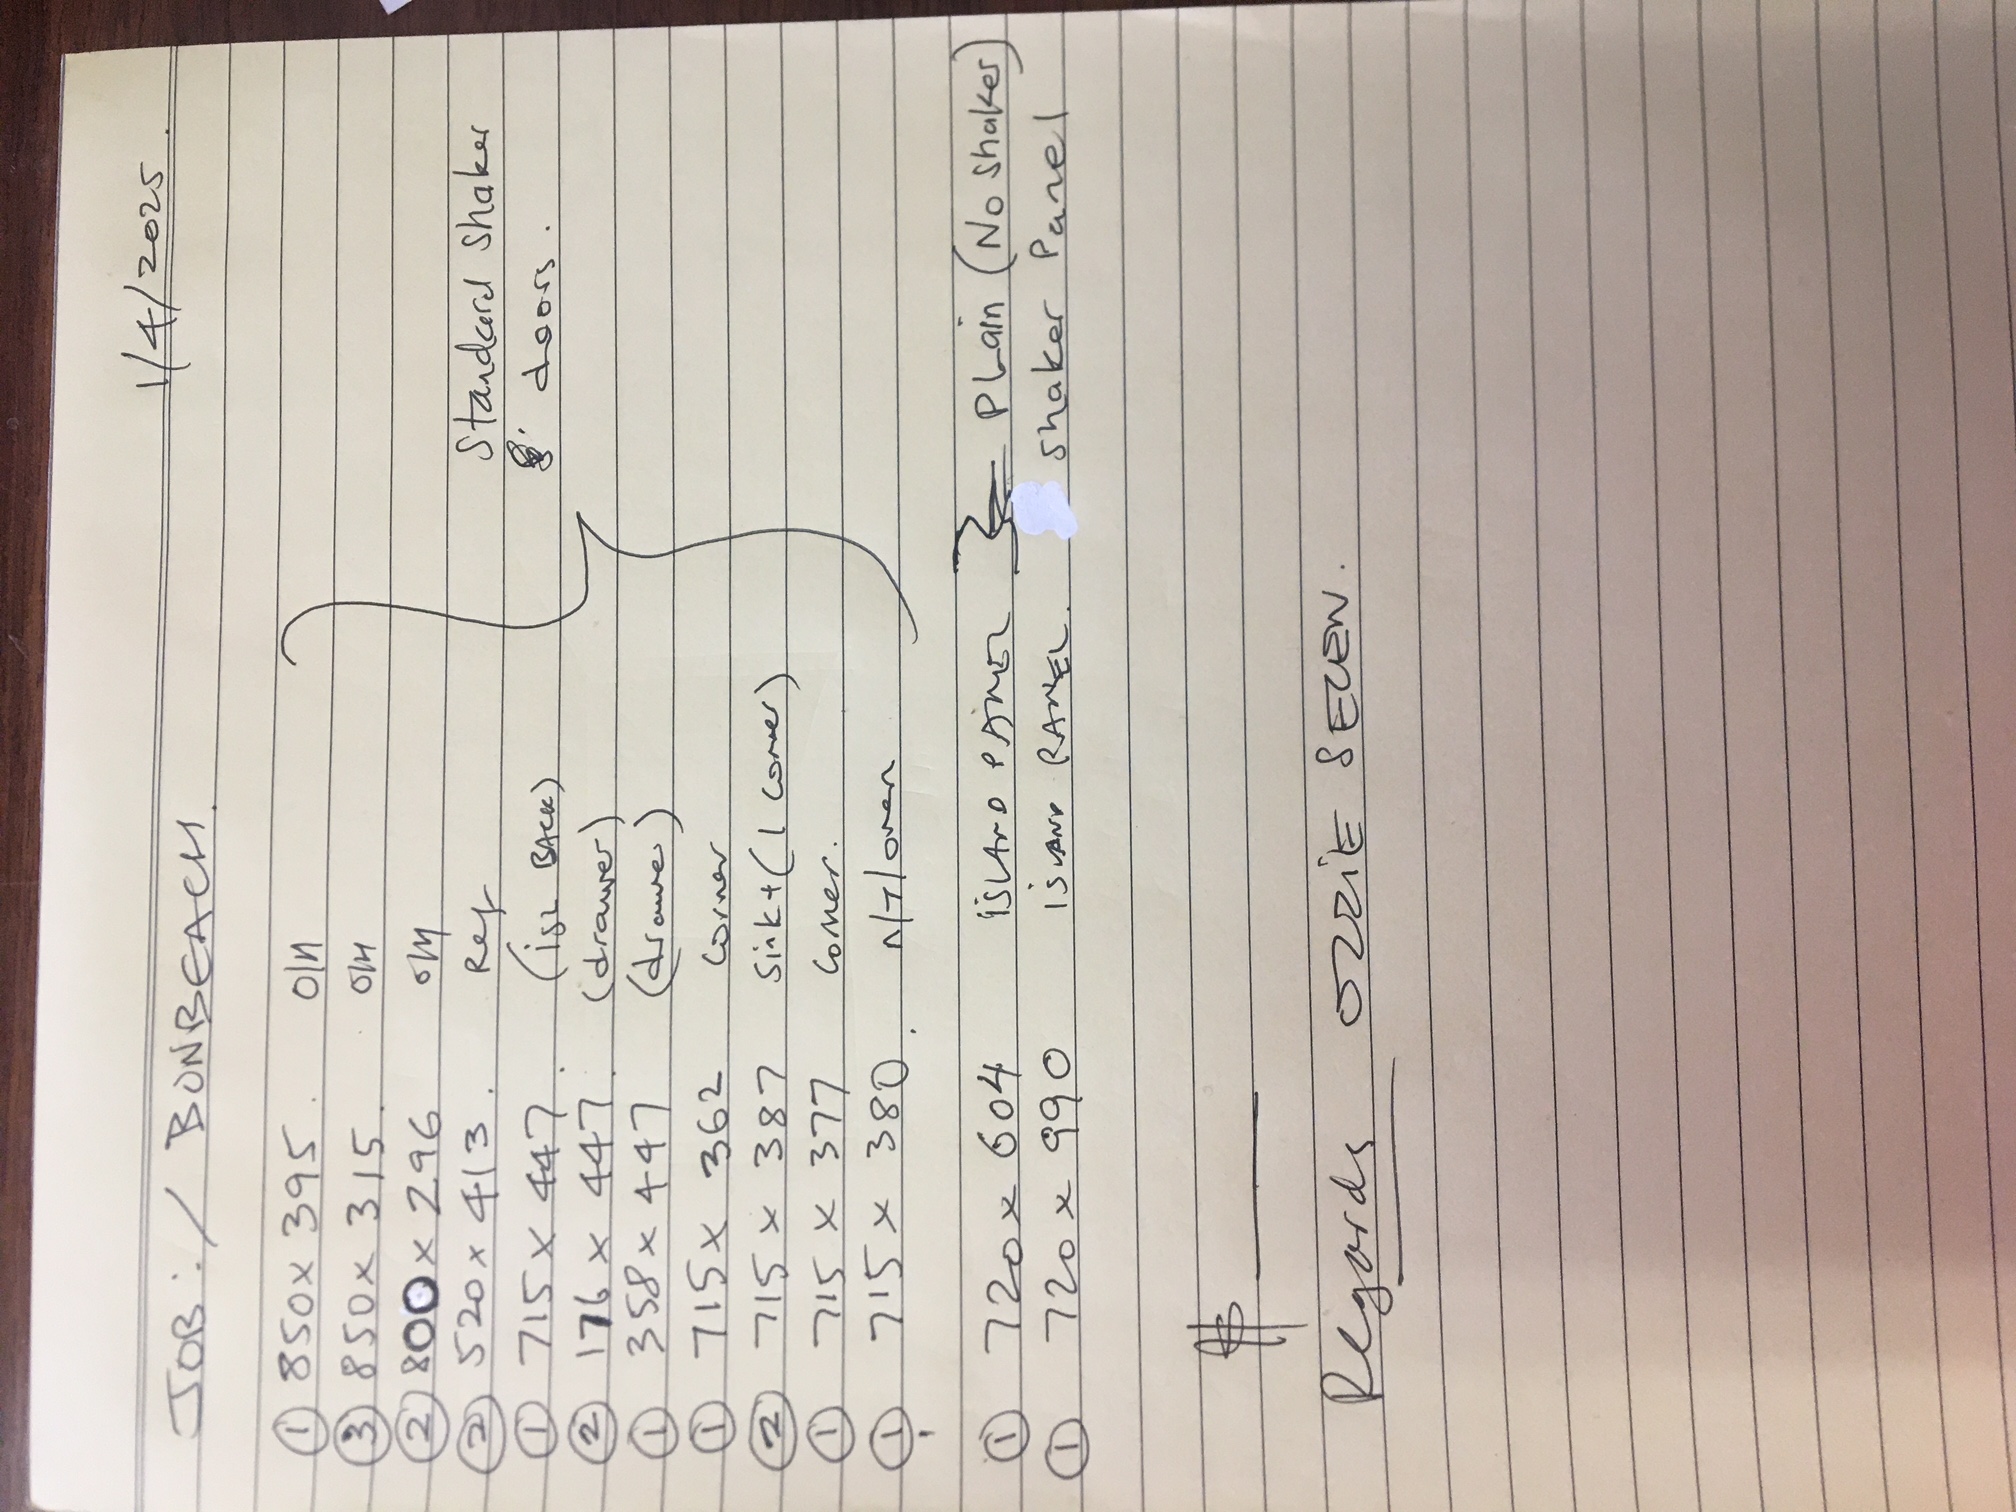 1/4/2025.
JOB:/ BONBEACH.
① 850 x 395. O/H
③ 850 x 315. O/H
② 800 x 296 O/H
② 520 x 413. Ref
Standard Shaker
① 715 x 447. (ISL BACK)
doors.
② 176 x 447. (drawer)
① 358 x 447 (drawer)
① 715 x 362 Corner
② 715 x 387 Sink + (1 Corner)
① 715 x 377 Corner.
① 715 x 380. N/T/oven
① 720 x 604 ISLAND PANEL } ← PLain (No Shaker)
① 720 x 990 ISLAND PANEL. Shaker Panel
$ ———
Regards OZZIE SEVEN.